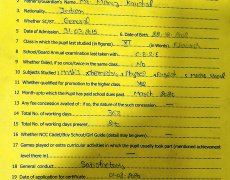 2 Mother/Guardian's Name Mr. Manoj Kaushal
3 Nationality Indian
4 Whether SC/ST General
5 Date of Admission 31.03.2015
Class in which the pupil last studied (in figures) XI (in Words) Eleventh
8 School/Board Annual examination last taken with C.B.S.E
9 Whether failed, if so once/twice in the same class No
10 Subjects Studied
11 Whether qualified for promotion to the higher class Yes
12 Month upto which the Pupil has paid school dues paid March 2020
13 Any fee concession availed of : if so, the nature of the such concession
14 Total No. of working days
15 Total No. of working days present
16 Whether NCC Cadet/Boy Scout/Girl Guide (detail may be given)
17 Games played or extra curricular activities in which the pupil usually took part (mentioned achievement
level there in)
18 General conduct Satisfactory
Date of application for certificate